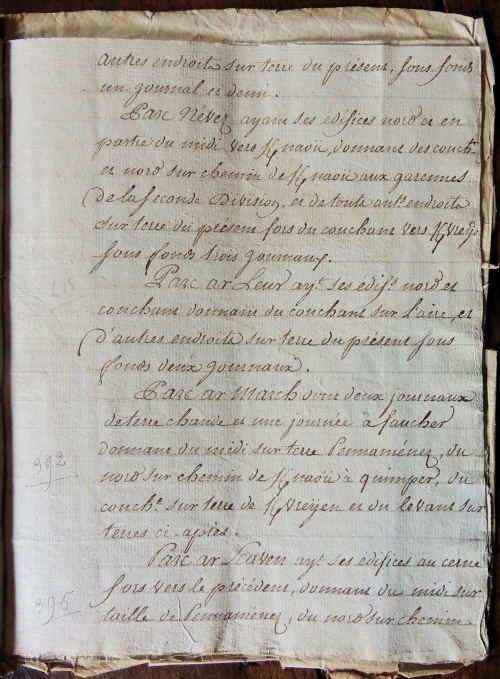 autres endroits sur terre du présent, sous fonds
un journal et demi.
Parc Nevez ayant ses édifices nord et en
partie du midi vers K/naoü, donnant des couch.t
et nord sur chemin de K/naoü aux garennes
de la seconde Division, et de touts aut.s endroits
sur terre du présent fors du couchant vers K/vreÿen
sous fonds trois journaux.
Parc ar Leur ay.t ses édif.s nord et
418
couchant donnant du couchant sur l'aire, et
d'autres endroits sur terre du présent sous
fonds deux journaux.
Parc ar March dont deux journaux
de terre chaude et une journée à faucher
donnant du midi sur terre Pennaménez, du
392
nord sur chemin de K/naoü à quimper, du
couch.t sur terre de K/vreÿen et du levant sur
terres ci-après.
Parc ar ay.t ses édifices au cerne
fors vers le précédent, donnant du midi sur
393
taille de Pennamenez, du nord sur chemin